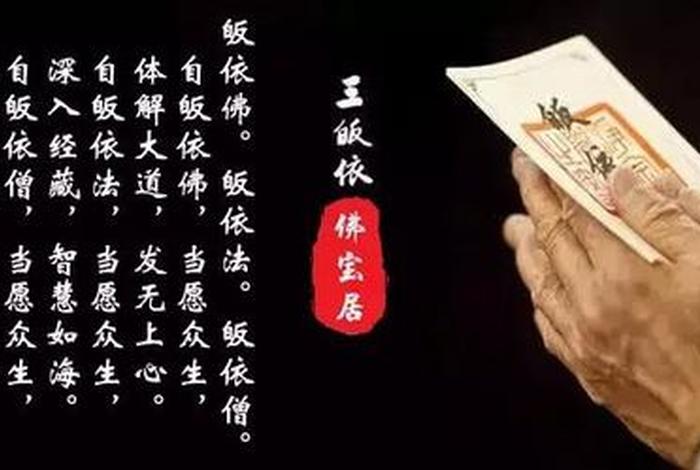 皈依
三皈依
佛宝居
皈依佛。皈依法。皈依僧。
自皈依佛，当愿众生，
体解大道，发无上心。
自皈依法，当愿众生，
深入经藏，智慧如海。
自皈依僧，当愿众生，